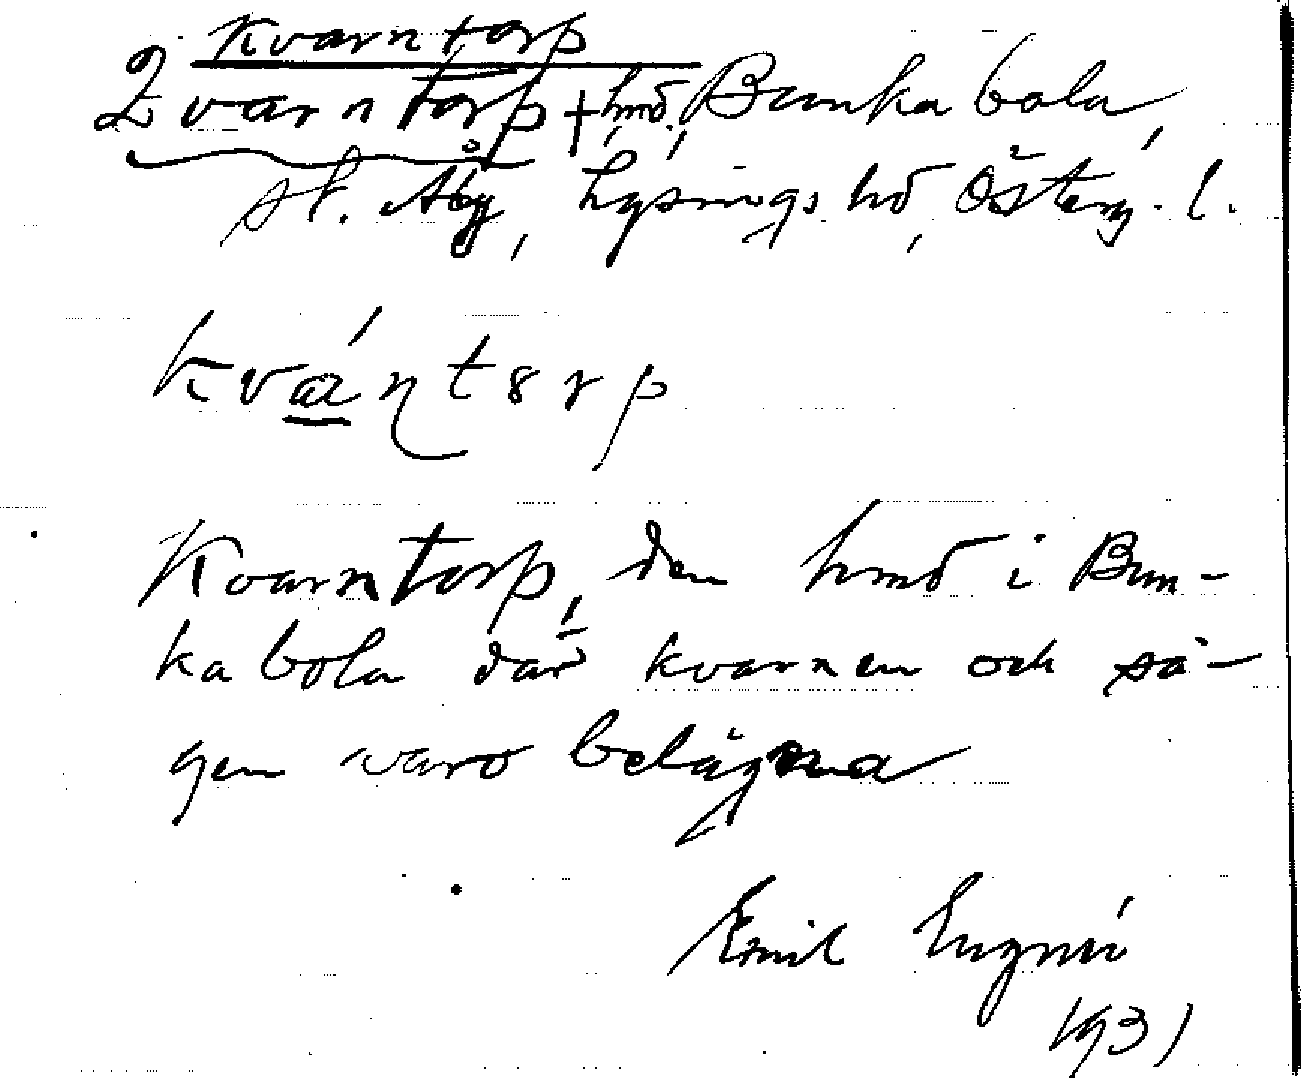 Kvarntorp
Qvarntorp + hmd, Bunkabola,
st. Åby, Lysings hd, Österg. l.
Kvarntorp, den hmd i Bun-
kabola där kvarnen och så-
gen varo belägna
Emil
1931